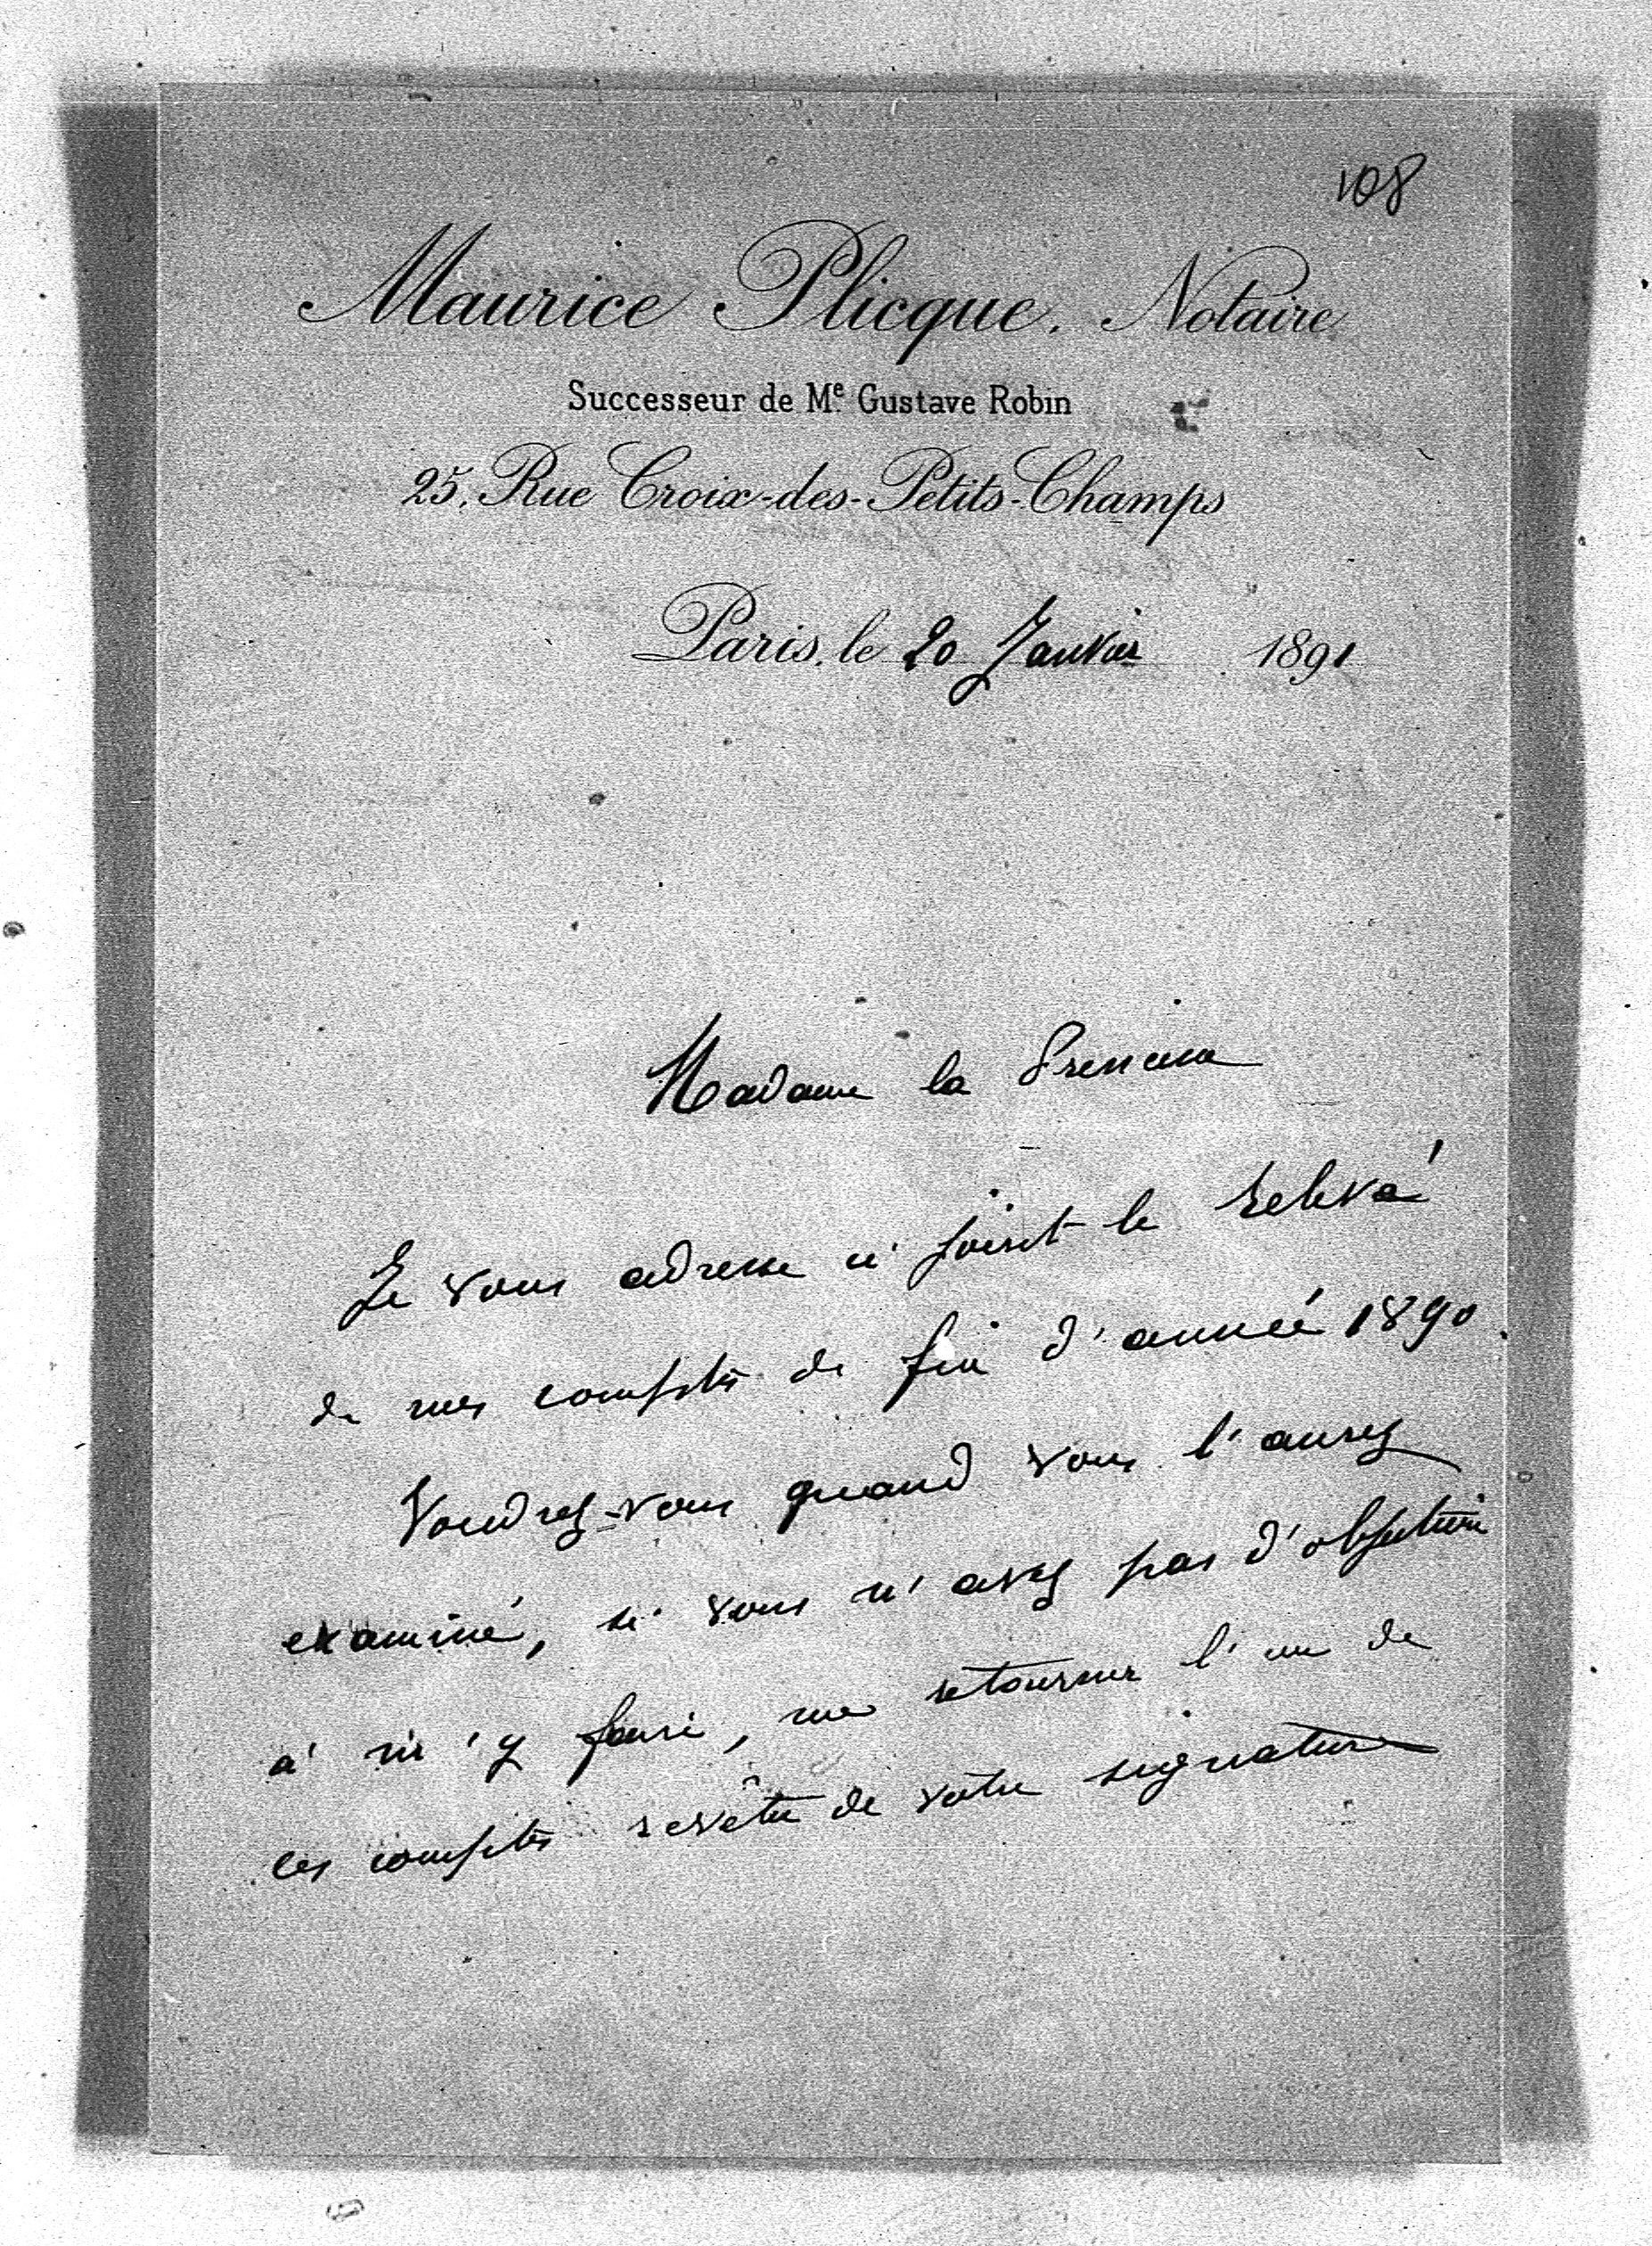 108
Maurice Plicque, Notaire
Successeur de Me Gustave Robin
25, Rue Croix-des-Petits-Champs
Paris, le 20 Janvier 1891
Madame la Princesse
Je vous adresse ci joint le relevé
de mes comptes de fin d'année 1890.
Voudrez-vous quand vous l'aurez
examiné, si vous n'avez pas d'objection
à m'y faire, me retourner l'un de
ces comptes revêtu de votre signature